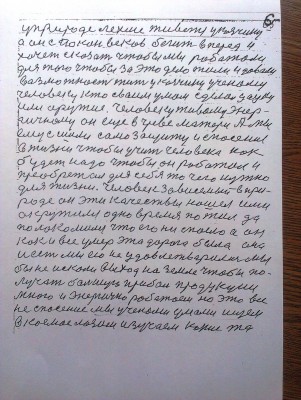 6
у природе легкие животу у клячину
а он спокон веков бежит вперед и
хочет сказать чтобы мы работали
для того чтобы за это дело жили и давали
возможность жить у клячину ученому
человеку кто своим умом сделал
им другие. Человеку живому энер-
гичному он еще в чреве матери
самозащиту и спасение
в жизни чтобы учить человека как
будет надо чтобы он работал и
приобретал для себя то что нужно
для жизни. Человек зависимый в при-
роде он эти качества нашел ими
окружил одно время пожил да
полакомили что его ни спасло а он
как и все умер эта дорога была она
и есть мы ею не удовлетворились мы
бы не искали выход на земле чтобы по-
лучать большую прибыл продукции
много и энергично работаем но это все
не спасение мы учеными умами ищем
в космос лазим изучаем какие то